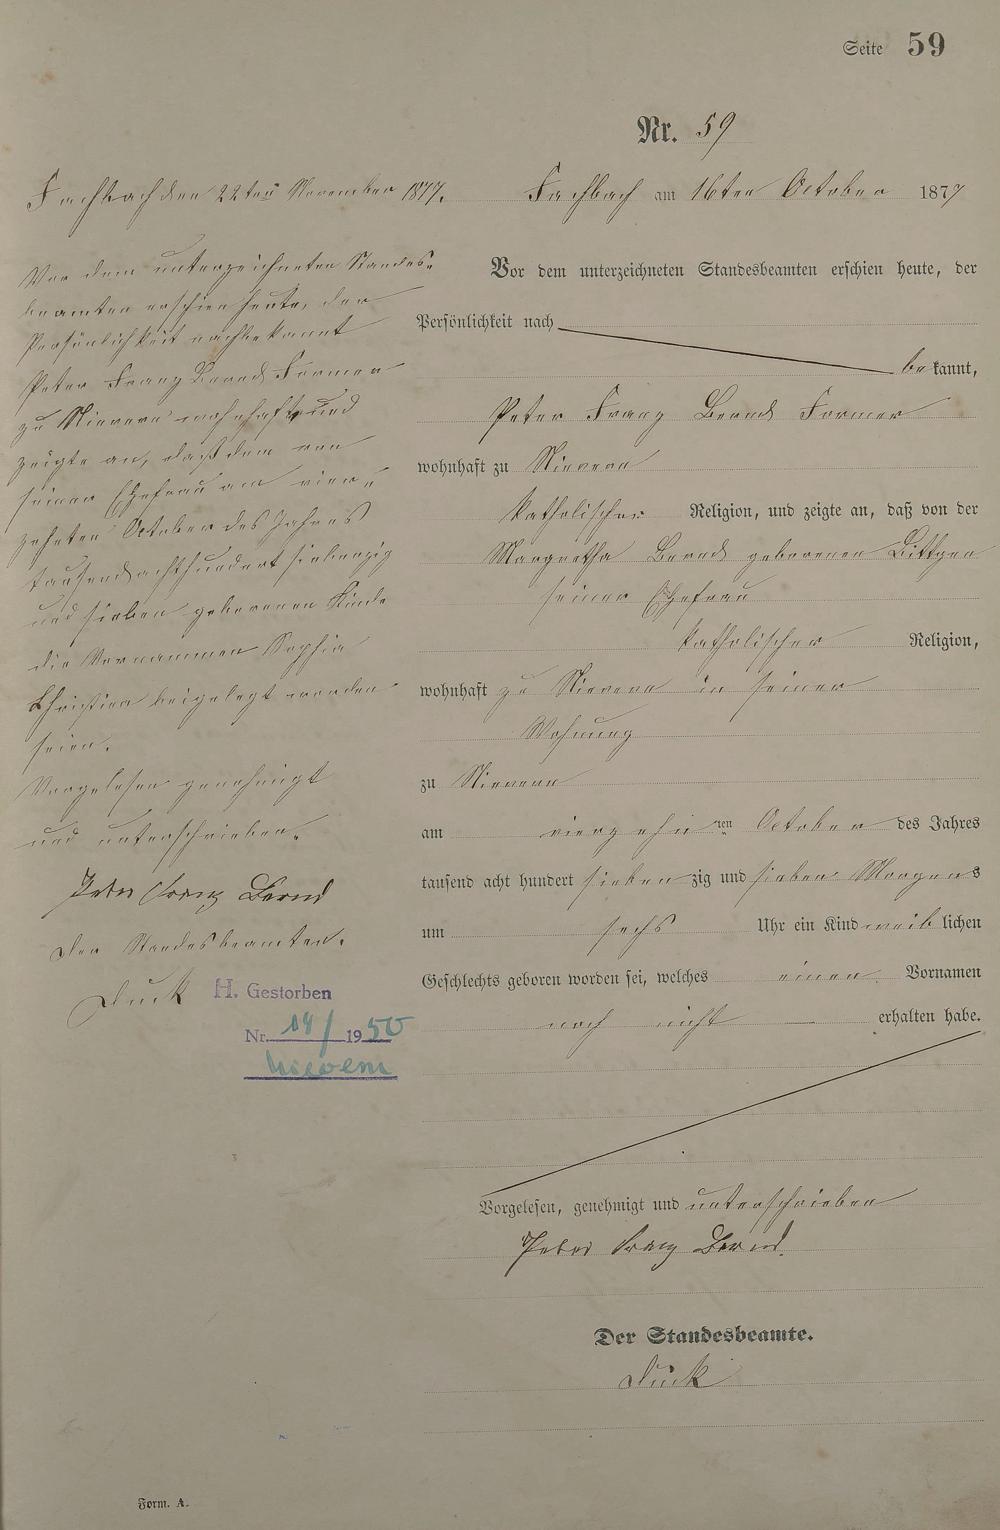 Seite 59
Nr. 59
Fachbach am 16ten October 1877
Vor dem unterzeichneten Standesbeamten erschien heute, der
Persönlichkeit nach
bekannt,
Peter Franz Bernd Former
wohnhaft zu Nievern
katholischer Religion, und zeigte an, daß von der
Margretha Bernd geborenen Bittgen
seiner Ehefrau
katholischer Religion,
wohnhaft zu Nievern in seiner
Wohnung
zu Nievern
am vierzehnten October des Jahres
tausend acht hundert siebenzig und sieben Morgens
um sechs Uhr ein Kind weiblichen
Geschlechts geboren worden sei, welches einen Vornamen
noch nicht erhalten habe.
Vorgelesen, genehmigt und unterschrieben
Peter Franz Bernd.
Der Standesbeamte.
Linck
Fachbach den 22ten November 1877.
Vor dem unterzeichneten Standes-
beamten erschien heute, der
Persönlichkeit nach bekannt
Peter Franz Bernd Former
zu Nievern wohnhaft und
zeigte an, daß dem von
seiner Ehefrau am vier-
zehnten October des Jahres
tausend achthundert siebenzig
und sieben geborenen Kinde
die Vornammen Sophia
Christina beigelegt worden
seien.
Vorgelesen genehmigt
und unterschrieben.
Peter Franz Bernd
Der Standesbeamten.
Linck
H. Gestorben
Nr. 14/1950
Nievern
Form. A.